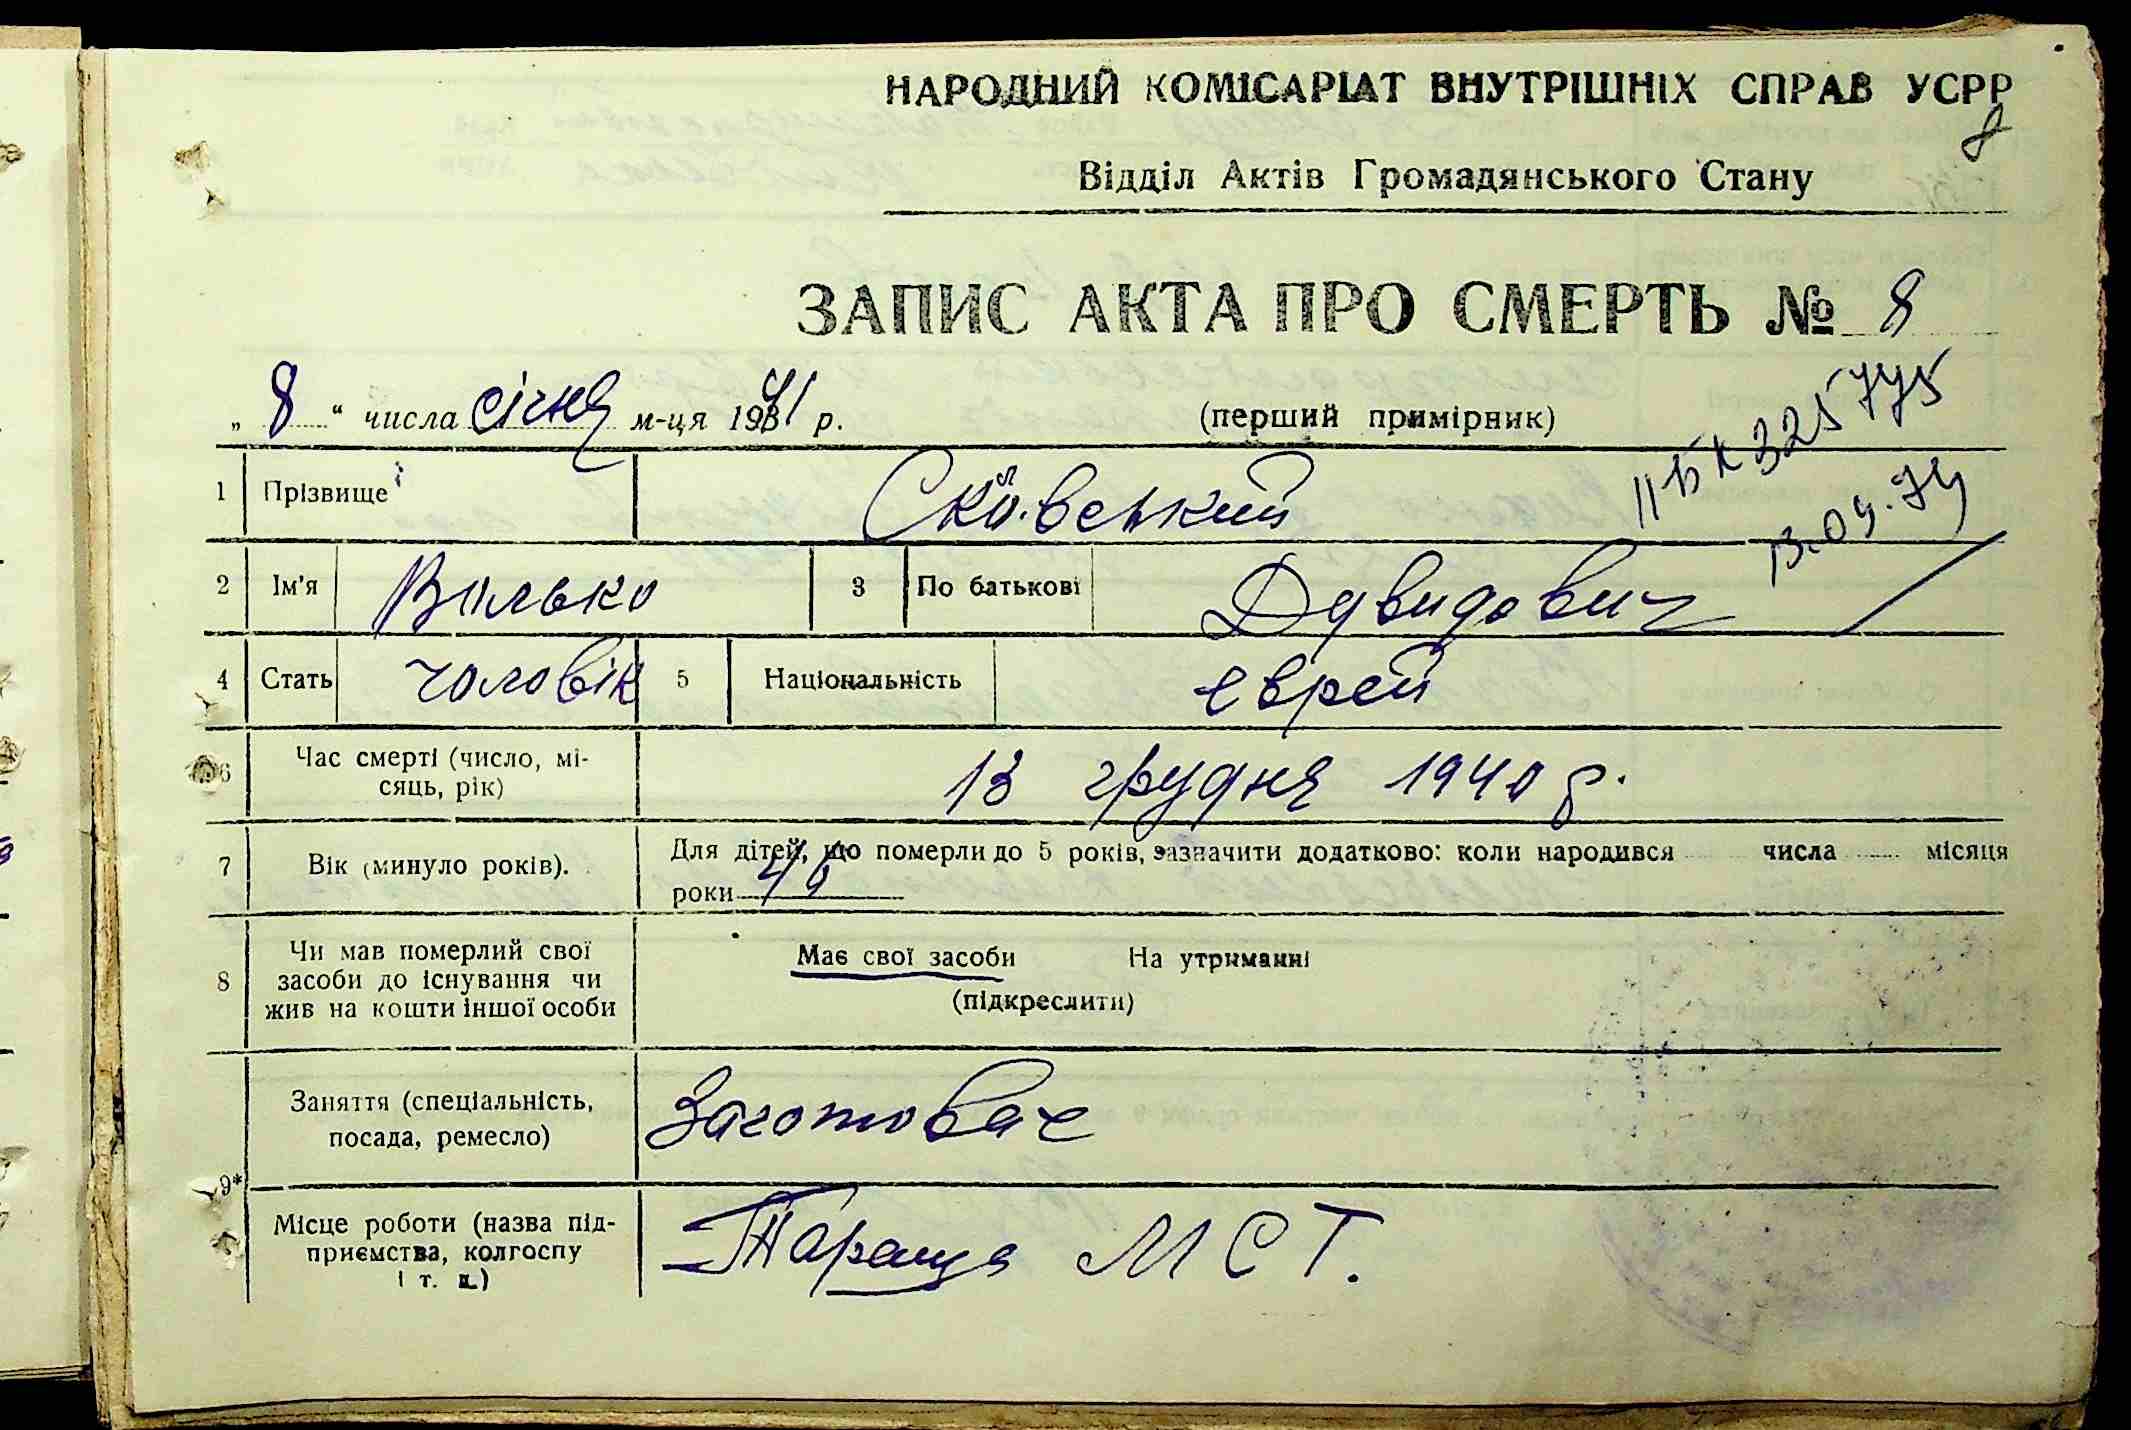 НАРОДНИЙ КОМІСАРІАТ ВНУТРІШНІХ СПРАВ УСРР
8
Відділ Актів Громадянського Стану
ЗАПИС АКТА ПРО СМЕРТЬ № 8
„ 8 “ числа січня м-ця 1941 р. (перший примірник)
II БК 325775
13.09.74
1 Прізвище Сковський
2 Ім'я Волько 3 По батькові Дувидович
4 Стать чоловік 5 Національність еврей
6 Час смерті (число, мі-
сяць, рік) 13 грудня 1940 р.
7 Вік (минуло років). Для дітей, що померли до 5 років, зазначити додатково: коли народився числа місяця
роки 46
8 Чи мав померлий свої
засоби до існування чи
жив на кошти іншої особи
Має свої засоби На утриманні
(підкреслити)
9* Заняття (спеціальність,
посада, ремесло) Заготовач
Місце роботи (назва під-
приємства, колгоспу
і т. д.) Тараща М С Т.